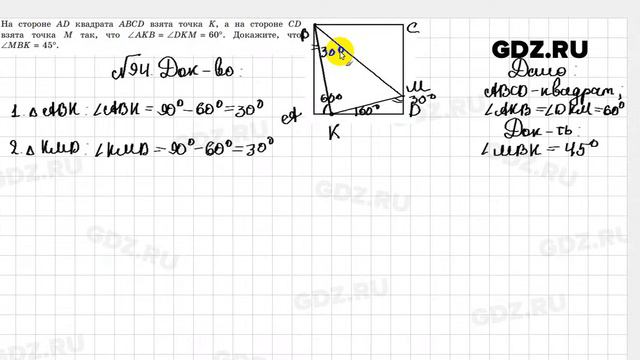 На стороне AD квадрата ABCD взята точка K, а на стороне CD
взята точка M так, что ∠AKB = ∠DKM = 60°. Докажите, что
∠MBK = 45°.
№94. Док-во:
1. △ ABK: ∠ABK = 90° – 60° = 30°
2. △ KMD: ∠KMD = 90° – 60° = 30°
B
C
30°
M
60°
60°
30°
A
D
K
GDZ.RU
Дано:
ABCD - квадрат;
∠AKB = ∠DKM = 60°
Док-ть:
∠MBK = 45°
GDZ.RU
GDZ.RU
GDZ.RU
GDZ.RU
GDZ.RU
GDZ.RU